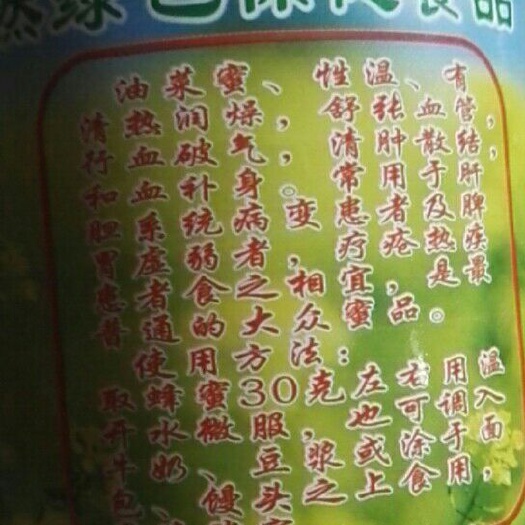 然绿色保健食品
油菜蜜、性温、有
清热润燥,舒张血管,
行血破气,清肿散结,
和血补身。常用于肝
胆系统病变患者及脾
胃虚弱者,疗疮热疾
患者食之相宜,是最
普通的大众蜜品。
使用方法:
取蜂蜜30克左右用温
开水微服,也可调入
牛奶、豆浆或涂于面
包、馒头之上食用,